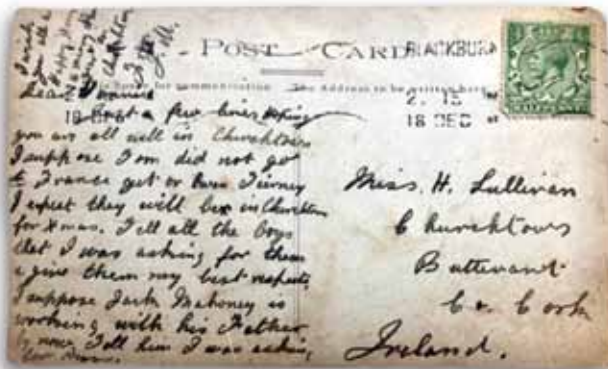 POST CARD
BLACKBURN
for communication The address to be written here
2. 15
18 DEC
HALFPENNY
I wish
you all a
Happy Xmas
Dear
Just a few lines hoping
you are all well in Churchtown
I suppose Tom did not go
to France yet or Owen Tierney
I expect they will be in Churchtown
for Xmas. Tell all the boys
that I was asking for them
& give them my best respects
I suppose Jack Mahoney is
working with his Father
by now Tell him I was asking
Miss. H. Sullivan
Churchtown
Buttevant
Co. Cork
Ireland.